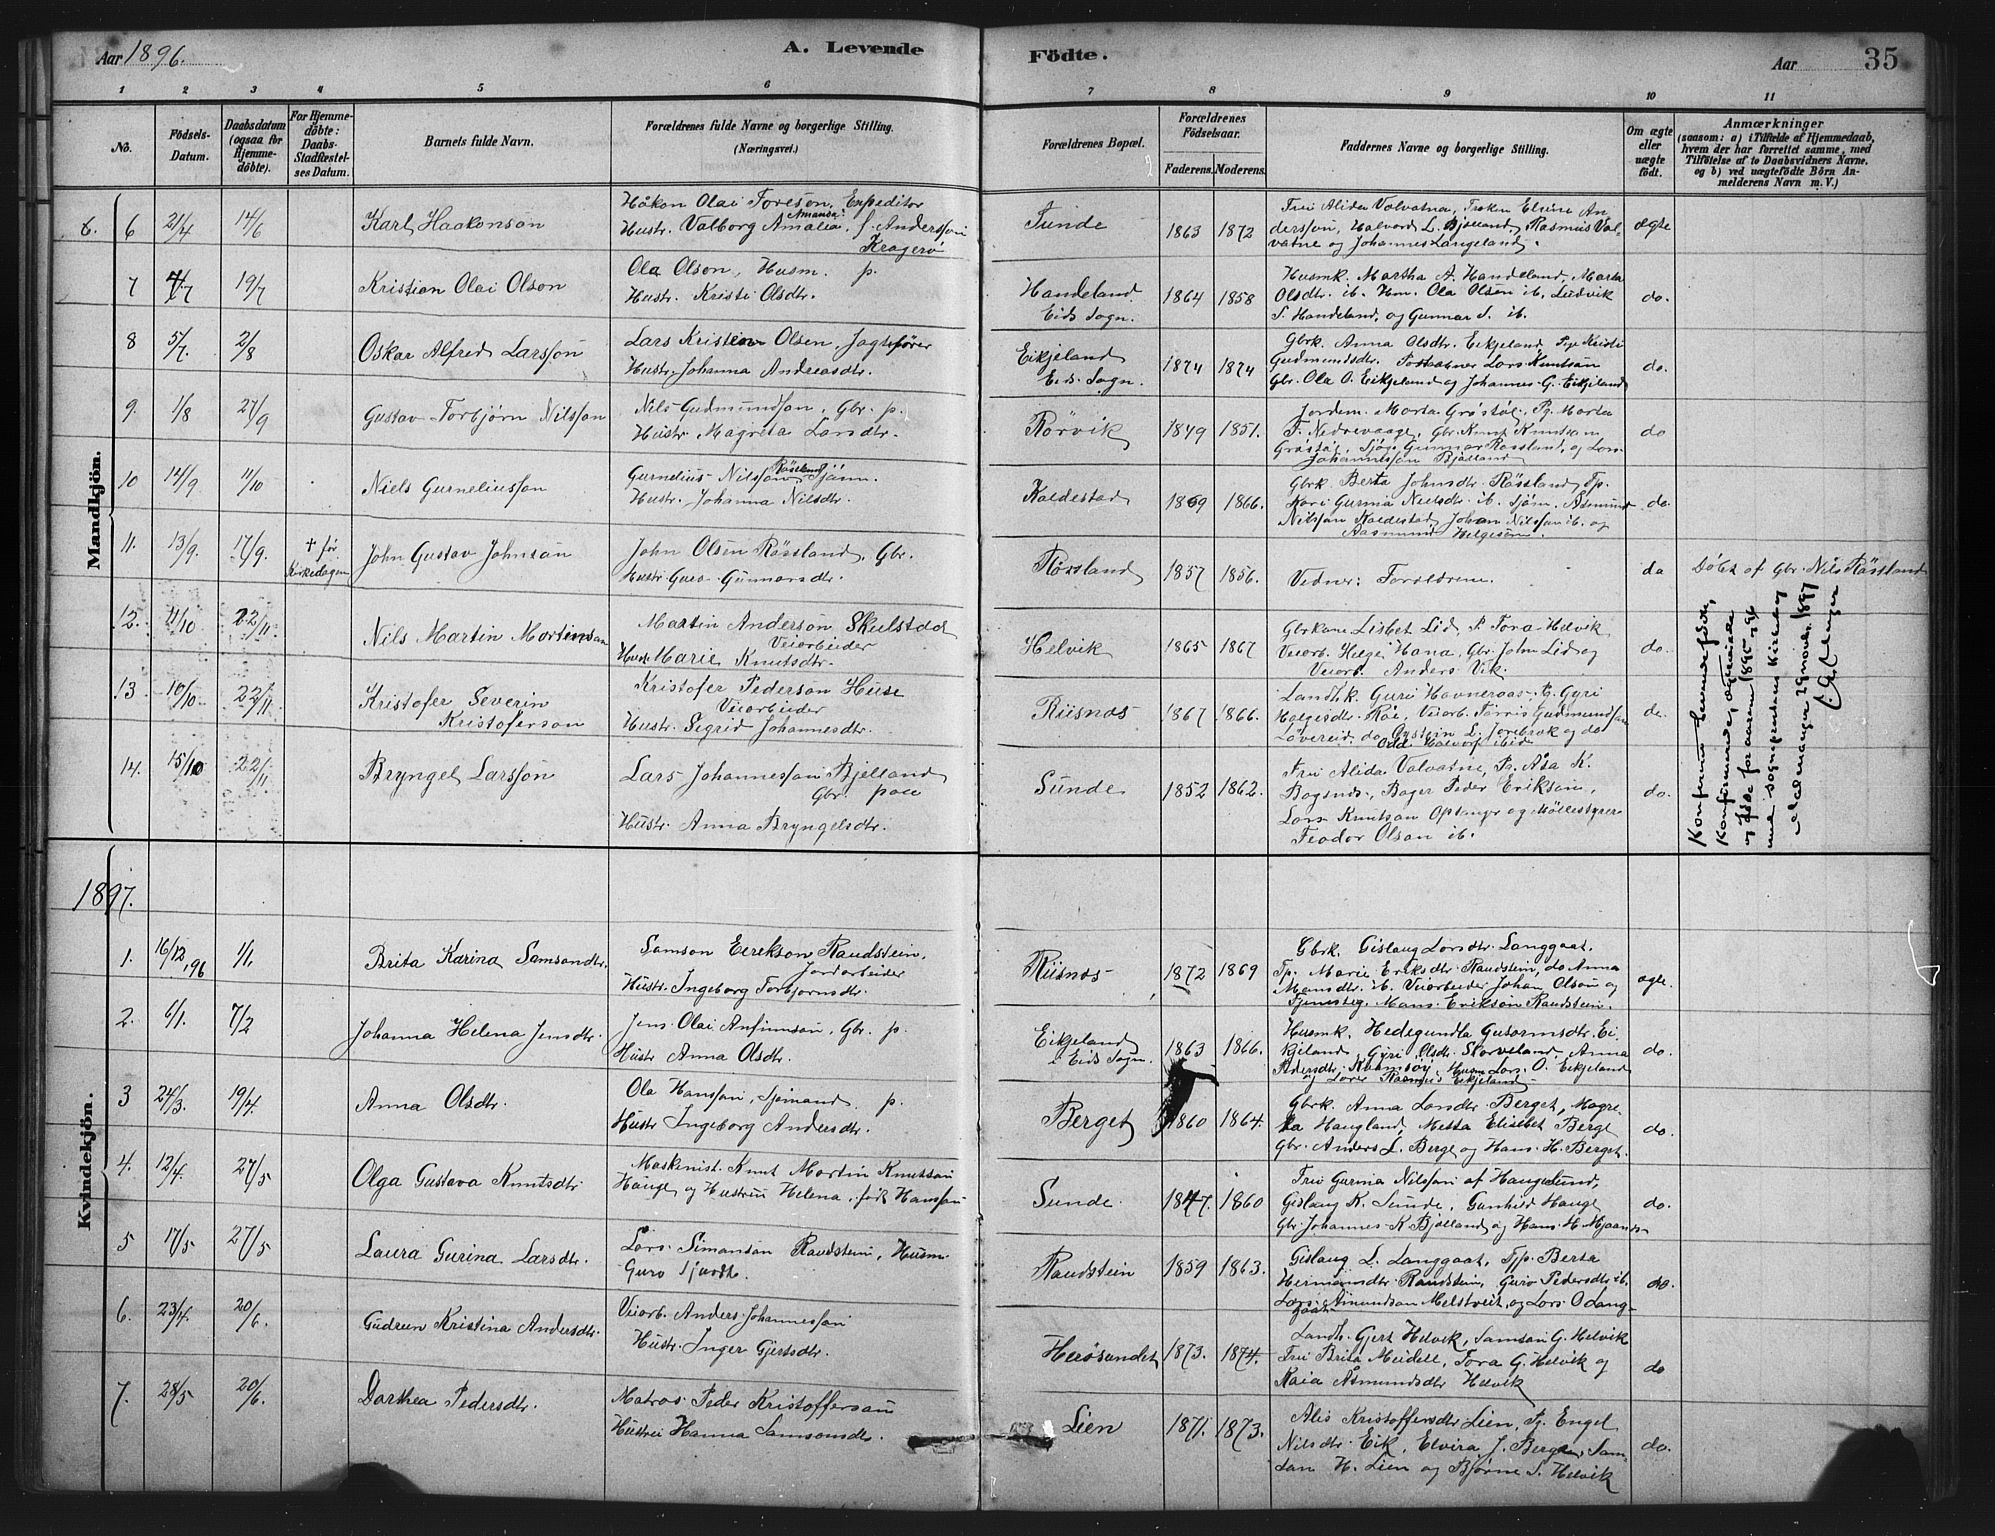 Aar 1896.
A. Levende
Födte.
Aar
35
1 2 3 4 5 6 7 8 9 10 11
No.
Födsels-
Datum.
Daabsdatum
(ogsaa for
Hjemme-
döbte).
For Hjemme-
döbte:
Daabs-
Stadfæstel-
ses Datum.
Barnets fulde Navn.
Forældrenes fulde Navne og borgerlige Stilling.
(Næringsvei.)
Forældrenes Bopæl.
Forældrenes
Födselsaar.
Faderens.
Moderens.
Faddernes Navne og borgerlige Stilling.
Om ægte
eller
uægte
födt.
Anmærkninger
(saasom: a) i Tilfælde af Hjemmedaab,
hvem der har forrettet samme, med
Tilföielse af to Daabsvidners Navne.
og b) ved uægtefödte Börn An-
melderens Navn m. V.)
Mandkjön.
6 21/4 14/6
Karl Haakonson
Håkon Olai Toreson, Expeditor
Amanda
Hustr. Valborg Amalia, f. Andersson
Kragerö
Sunde
1863 1872
Frui Alida Valvatna, Frøken Elsine An
dersson, Halvord L. Bjelland, Rasmus Val-
vatne og Johannes Langeland.
ægte
7 4/7 19/7
Kristian Olai Olson
Ola Olson, Husm. p.
Hustr. Kristi Olsdtr.
Handeland
Eids Sogn.
1864 1858
Husmk. Martha A. Handeland, Marta
Olsdtr. ib. Hm. Ola Olsen ib, Ludvik
S. Handeland, og Gunnar S. ib.
do.
8 5/7. 2/8
Oskar Alfred Larsson
Lars Kristen Olsen, Jagtsfører
Hustr. Johanna Andreasdtr.
Eikjeland
Eids Sogn.
1874 1874
Gbrk. Anna Olsdtr. Eikjeland Pge Kristi
Gudmundsdtr. Lars Knutson
Gbr. Ola O. Eikjeland og Johannes G. Eikjeland
do.
9. 1/8 27/9
Gustav Torbjørn Nilsson
Nils Gudmundson, Gbr. p.
Hustr. Magreta Larsdtr.
Rørvik
1849 1851.
Jordem. Marta Grøstøl, Pg. Marta
T. Nedrevaage, Gbr. Knut Knutson
Grøstøl, Sjøg. Gunnar Røssland, og Lars
Johannesson Bjelland
do
10 14/9 11/10
Niels Gurneliusson
Røssland
Gurnelius Nilsson Sjöm.
Hustr. Johanna Nilsdtr.
Kaldestad
1869 1866.
Gbrk. Berta Johnsdtr. Røssland Tp.
Kari Gurina Nielsdtr. ib. Sjöm. Asmund
Nilsson Kaldestad Johan Nilsson ib. og
Aasmund Helgesen.
do
11. 13/9. 17/9.
† før
Kirkedagen
John Gustav Johnson
John Olsen Røssland, Gbr.
Hustr. Guro Gunnarsdtr.
Røssland
1857 1856.
Vidner: Forældrene.
do
Döbt af Gbr. Nils Røssland
12. 11/10 22/11.
Nils Martin Martinson
Martin Anderson Skulstad
Veiarbeider
Hustr. Marie Knutsdtr.
Helvik
1865 1867
Gbrkone Lisbet Lid, P. Tora Helvik
Veiarb. Helge Hana, Gbr. John Lid og
Veiarb. Anders Vik.
do.
13 10/10 22/11.
Kristofer Severin
Kristoferson
Kristofer Pederson Huse
Veiarbeider
Hustr. Sigrid Johannesdtr.
Riisnæs
1867 1866.
Landhk. Guri Havneraas P. Gyri
Helgesdtr. Røe, Veiarb. Torris Gudmundson
Løvereid, do Øystein L. Torebrok og do
Odd Halvors. ibid
do.
14. 15/10 22/11.
Bryngel Larsson
Lars Johannesson Bjelland
Gbr. paa
Hustr. Anna Bryngelsdtr.
Sunde
1852 1862.
Frui Alida Valvatne, Pg. Åsa K.
Bogsnes, Bager Peder Erikson,
Lars Knutson Optenyr og Møllestyrer
Teodor Olson ib.
do.
Konfereret Levendefødte,
Konfirmerede, Ægteviede
og Døde for aarene 1895 og 96
med sogneprestens Kirkebog
Malmanger 29 novbr. 1897
1897.
Kvindekjön.
1. 16/12,96 1/1.
Brita Karina Samsondtr.
Samson Eerikson Raudstein,
Jordarbeider
Hustr. Ingeborg Torbjornsdtr.
Riisnæs
1872 1869
Gbrk. Gislaug Larsdtr. Langgaat,
Tp. Marie Eriksdtr. Raudstein, do Anna
Mansdtr. ib. Veiarbeider Johan Olson og
Tjenestg. Mans Erikson Raudstein.
ægte.
2. 6/1. 7/2
Johanna Helena Jensdtr.
Jens Olai Anfinnson, Gbr. p.
Hustr. Anna Olsdtr.
Eikjeland
i Eids Sogn.
1863 1866.
Husmk. Hedegundla Gutormsdtr. Ei
kjeland, Gyri Olsdtr. Skorveland, Anna
Pedersdtr. Kvamsøy, Husm. Lars O. Eikjeland
og Rasmus Eikjeland
do.
3 24/3. 19/4.
Anna Olsdtr.
Ola Hansson, Sjömand p.
Hustr Ingeborg Andersdtr.
Berget
1860 1864.
Gbrk. Anna Larsdtr. Berget, Magre-
ta Haugland, Metta Elisebet Berge
Gbr. Anders L. Berge og Hans H. Berget.
do.
4. 12/4. 27/5
Olga Gustava Knutsdtr.
Maskenist Knut Martin Knutson
Hauge og Hustrui Helena, født Hansson
Sunde.
1847. 1860
Frui Gurina Nilsson af Haugesund,
Gislaug K. Sunde, Gunhild Hauge
Gbr. Johannes K Bjelland og Hans H. Mjaanes
do.
5 17/5 27/5
Laura Gurina Larsdtr.
Lars Simonson Raudstein, Husm.
Guro Sjurdt.
Raudstein
1859 1863.
Gislaug L. Langgaat, Tjp. Berta
Hermundtr Raudstein, Guro Pedersdtr ib.
Lars Amundson Melstveit, og Lars O Lang-
gaat
do.
6. 23/4. 20/6.
Gudrun Kristina Andersdtr.
Veiarb. Anders Johannesson
Hustr. Inger Gjertsdtr.
Herøsundet
1873. 1874.
Landh. Gjert Helvik, Samson G. Helvik
Frui Brita Meidell, Tora G. Helvik og
Kaia Åsmundsdtr Helvik
do
7. 28/5 20/6.
Darthea Pedersdtr.
Matros Peder Kristofferson
Hustrui Hanna Samsonsdtr.
Lien
1871. 1873.
Alis Kristoffersdtr Lien, Pg. Engel
Nilsdtr. Eik, Elvira J. Berge, Sam-
son H. Lien og Bjørne S. Helvik
do.